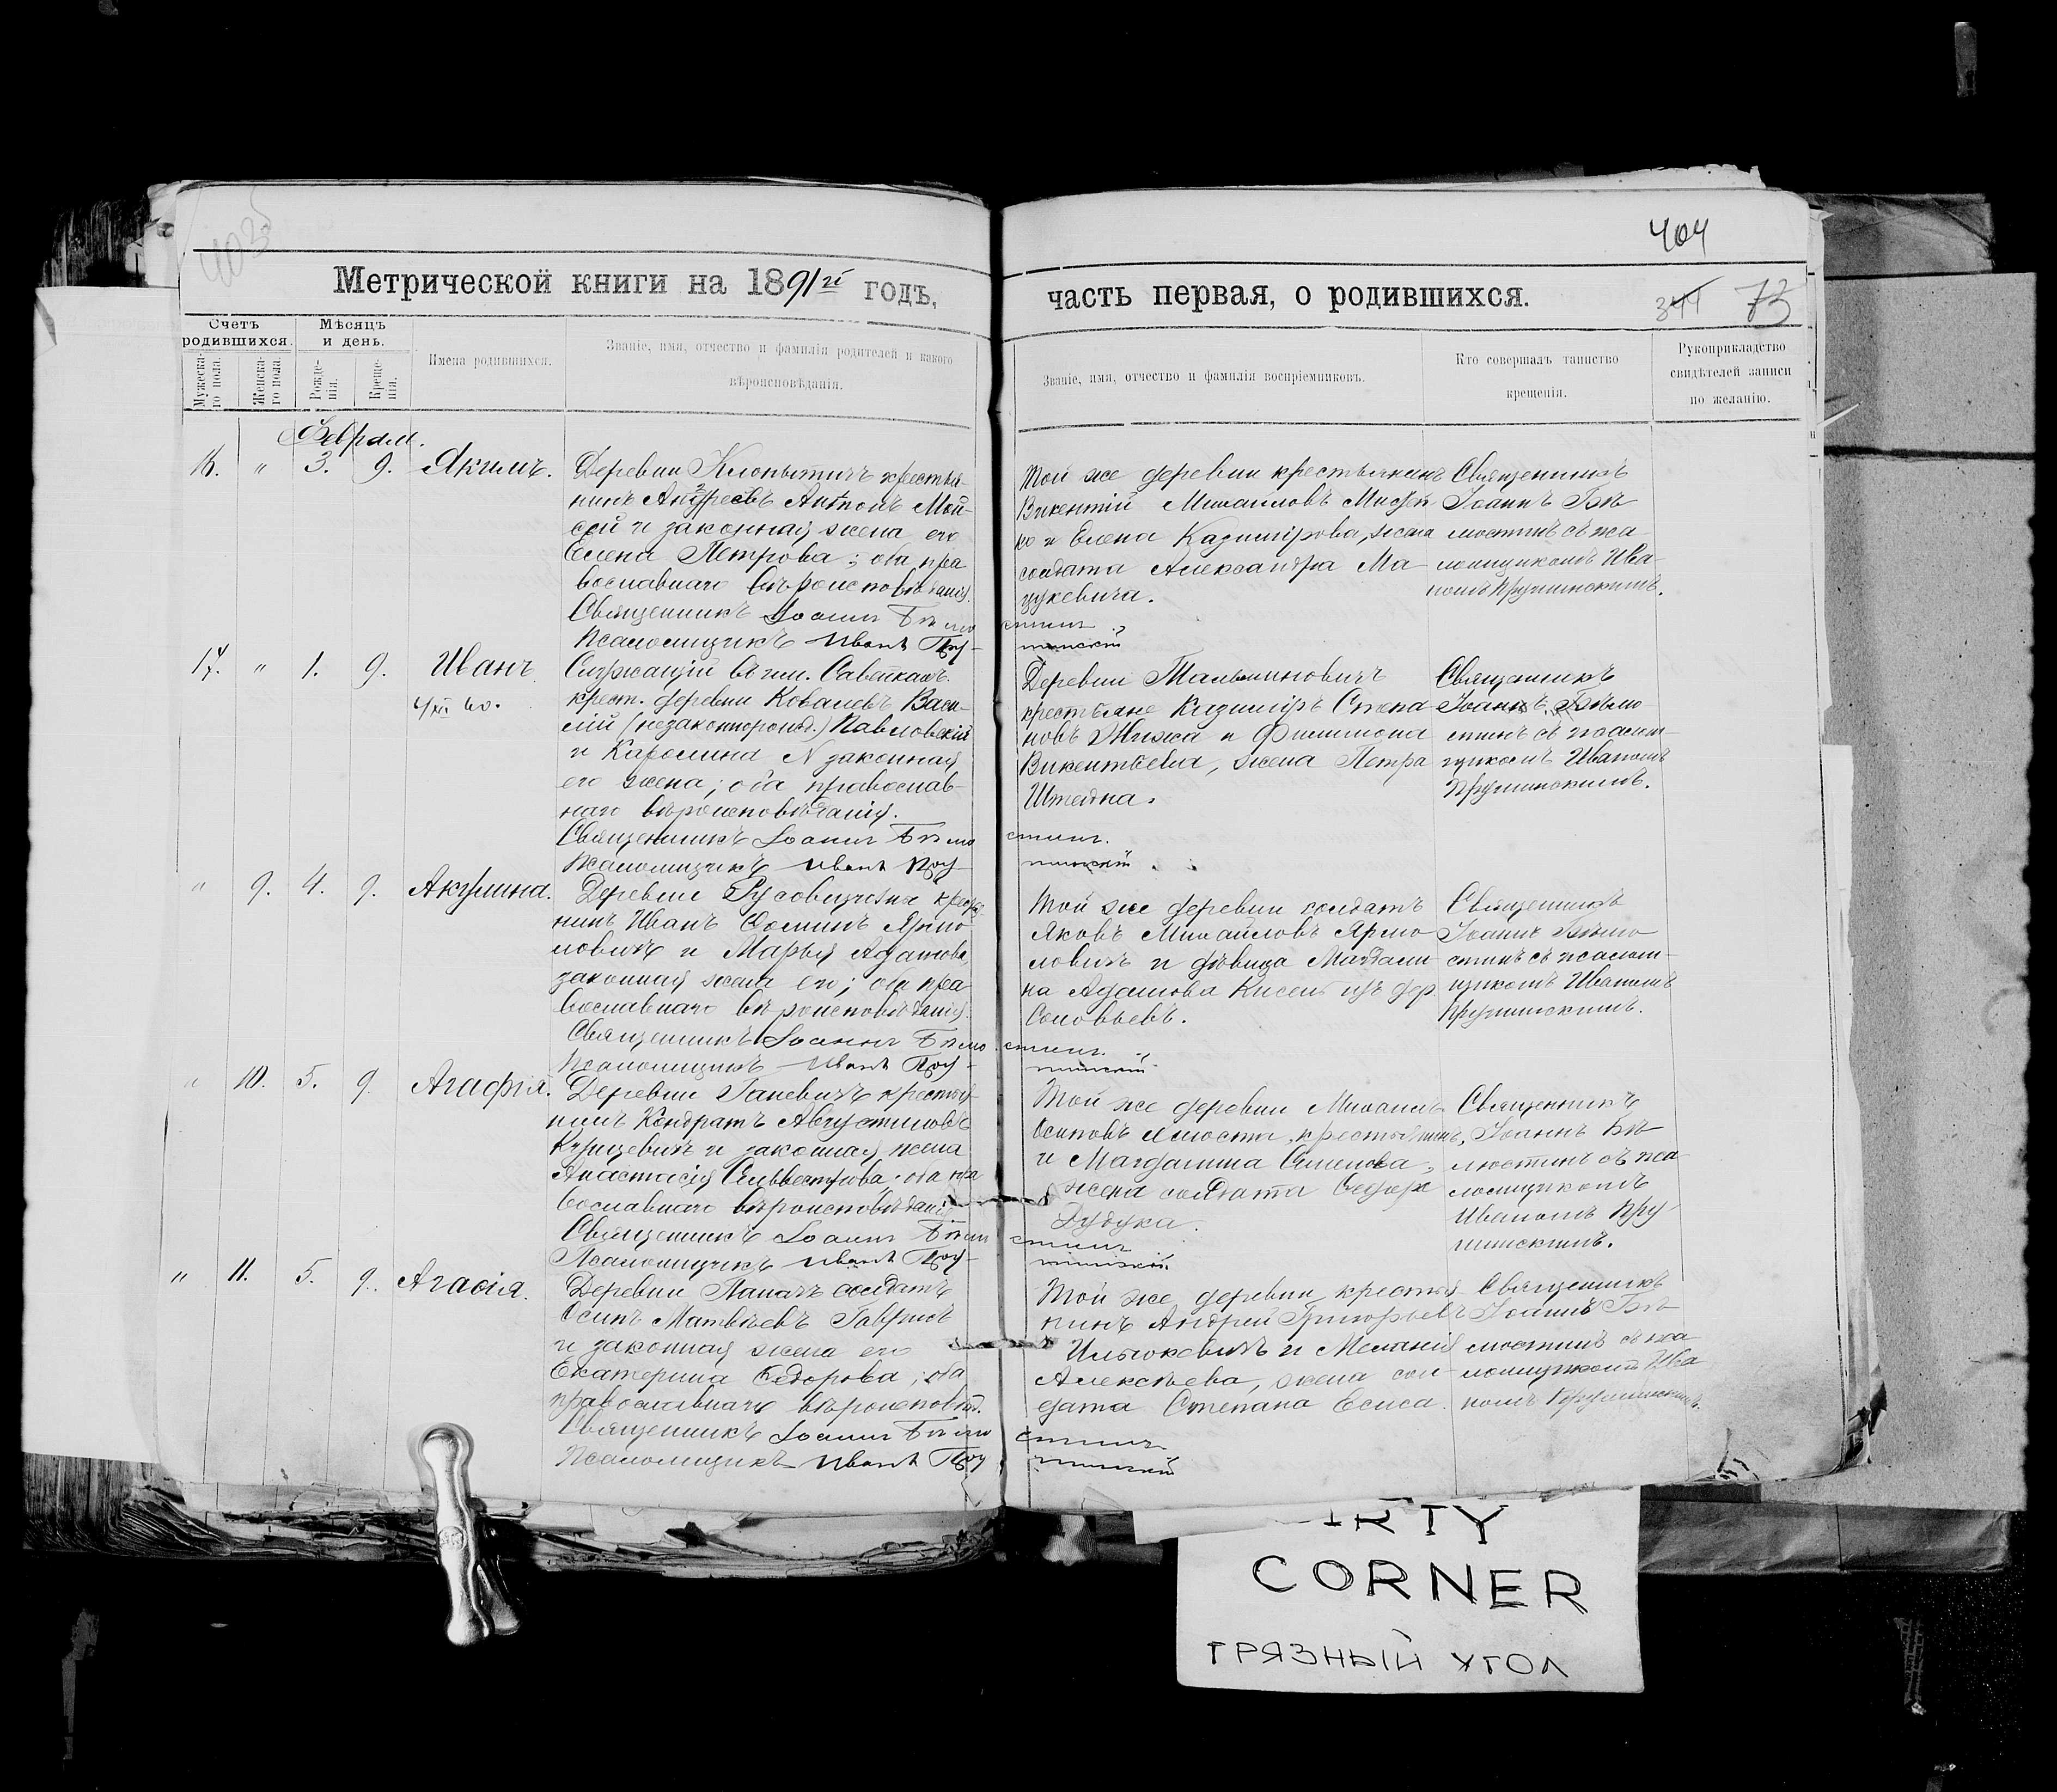 404
Метрической книги на 1891й годъ,
часть первая, о родившихся.
73
Счетъ родившихся.
Мѣсяцъ и день.
Мужеска-го пола.
Женска-го пола.
Рожде-нія.
Креще-нія.
Имена родившихся.
Званіе, имя, отчество и фамилія родителей и какого
вѣроисповѣданія.
Званіе, имя, отчество и фамилія воспріемниковъ.
Кто совершалъ таинство
крещенія.
Рукоприкладство
свидѣтелей записи
по желанію.
Февраль.
16. " 3. 9. Якимъ.
Деревни крестья-
нинъ Антонъ Мой-
сей и законная жена его
Елена Петрова; оба пра
вославнаго вѣроисповѣданія.
Священникъ Іоаннъ Бѣлю
Псаломщикъ Иванъ Пру-
Той же деревни крестьянинъ
Викентій Михаиловъ
и Елена Казимірова, жена
солдата Александра Ма
цукевича.
стинъ
шинскій
Священникъ
Іоаннъ Бѣ
люстинъ съ пса
ломщикомъ Ива-
номъ Прушинскимъ.
17. " 1. 9. Иванъ
Служащій въ им. Савейкахъ
крест. деревни Ковалевъ Васи-
лій (незаконнорожд.) Павловскій
и Каролина N законная
его жена; оба православ-
наго вѣроисповѣданія.
Священникъ Іоаннъ Бѣлю
Псаломщикъ Иванъ Пру-
Деревни
крестьяне Казиміръ Степа
новъ и Филимона
Викентьева, жена Петра
стинъ.
шинскій
Священникъ
Іоаннъ Бѣлю
стинъ съ псалом-
щикомъ Иваномъ
Прушинскимъ.
" 9. 4. 9. Акулина.
Деревни крестья
нинъ Иванъ Ѳоминъ Ярмо
ловичъ и Марья Адамова,
законная жена его; оба пра-
вославнаго вѣроисповѣданія.
Священникъ Іоаннъ Бѣлю
Псаломщикъ Иванъ Пру-
Той же деревни солдатъ
Яковъ Михайловъ Ярмо
ловичъ и дѣвица Магдали
на Адамова Кисель изъ дер.
Соловьевъ.
стинъ.
шинскій
Священникъ
Іоаннъ Бѣлю
стинъ съ псалом-
щикомъ Иваномъ
Прушинскимъ.
" 10. 5. 9 Агафія.
Деревни Ганевичъ крестья-
нинъ Кондратъ Августиновъ
и законная жена
Анастасія Сильвестрова; оба пра
вославнаго вѣроисповѣданія
Священникъ Іоаннъ Бѣлю
Псаломщикъ Иванъ Пру-
Той же деревни Михаилъ
Осиповъ крестьянинъ,
и Магдалина Семенова,
жена солдата Ѳедора
Дудука.
стинъ
шинскій.
Священникъ
Іоаннъ Бѣ
люстинъ съ пса
ломщикомъ
Иваномъ Пру
шинскимъ.
" 11. 5. 9. Агаѳія.
Деревни солдатъ
Осипъ Матвѣевъ
и законная жена его
Екатерина Ѳедорова; оба
православнаго вѣроисповѣд.
Священникъ Іоаннъ Бѣлю
Псаломщикъ Иванъ Пру
Той же деревни крестья
нинъ Андрей Григорьевъ
Ильюкевичъ и Меланія
Алексѣева, жена сол-
дата Степана Есиса.
стинъ
шинскій
Священникъ
Іоаннъ Бѣ
люстинъ съ пса
ломщикомъ Ива
номъ Прушинскимъ.
CORNER
ГРЯЗНЫЙ УГОЛ